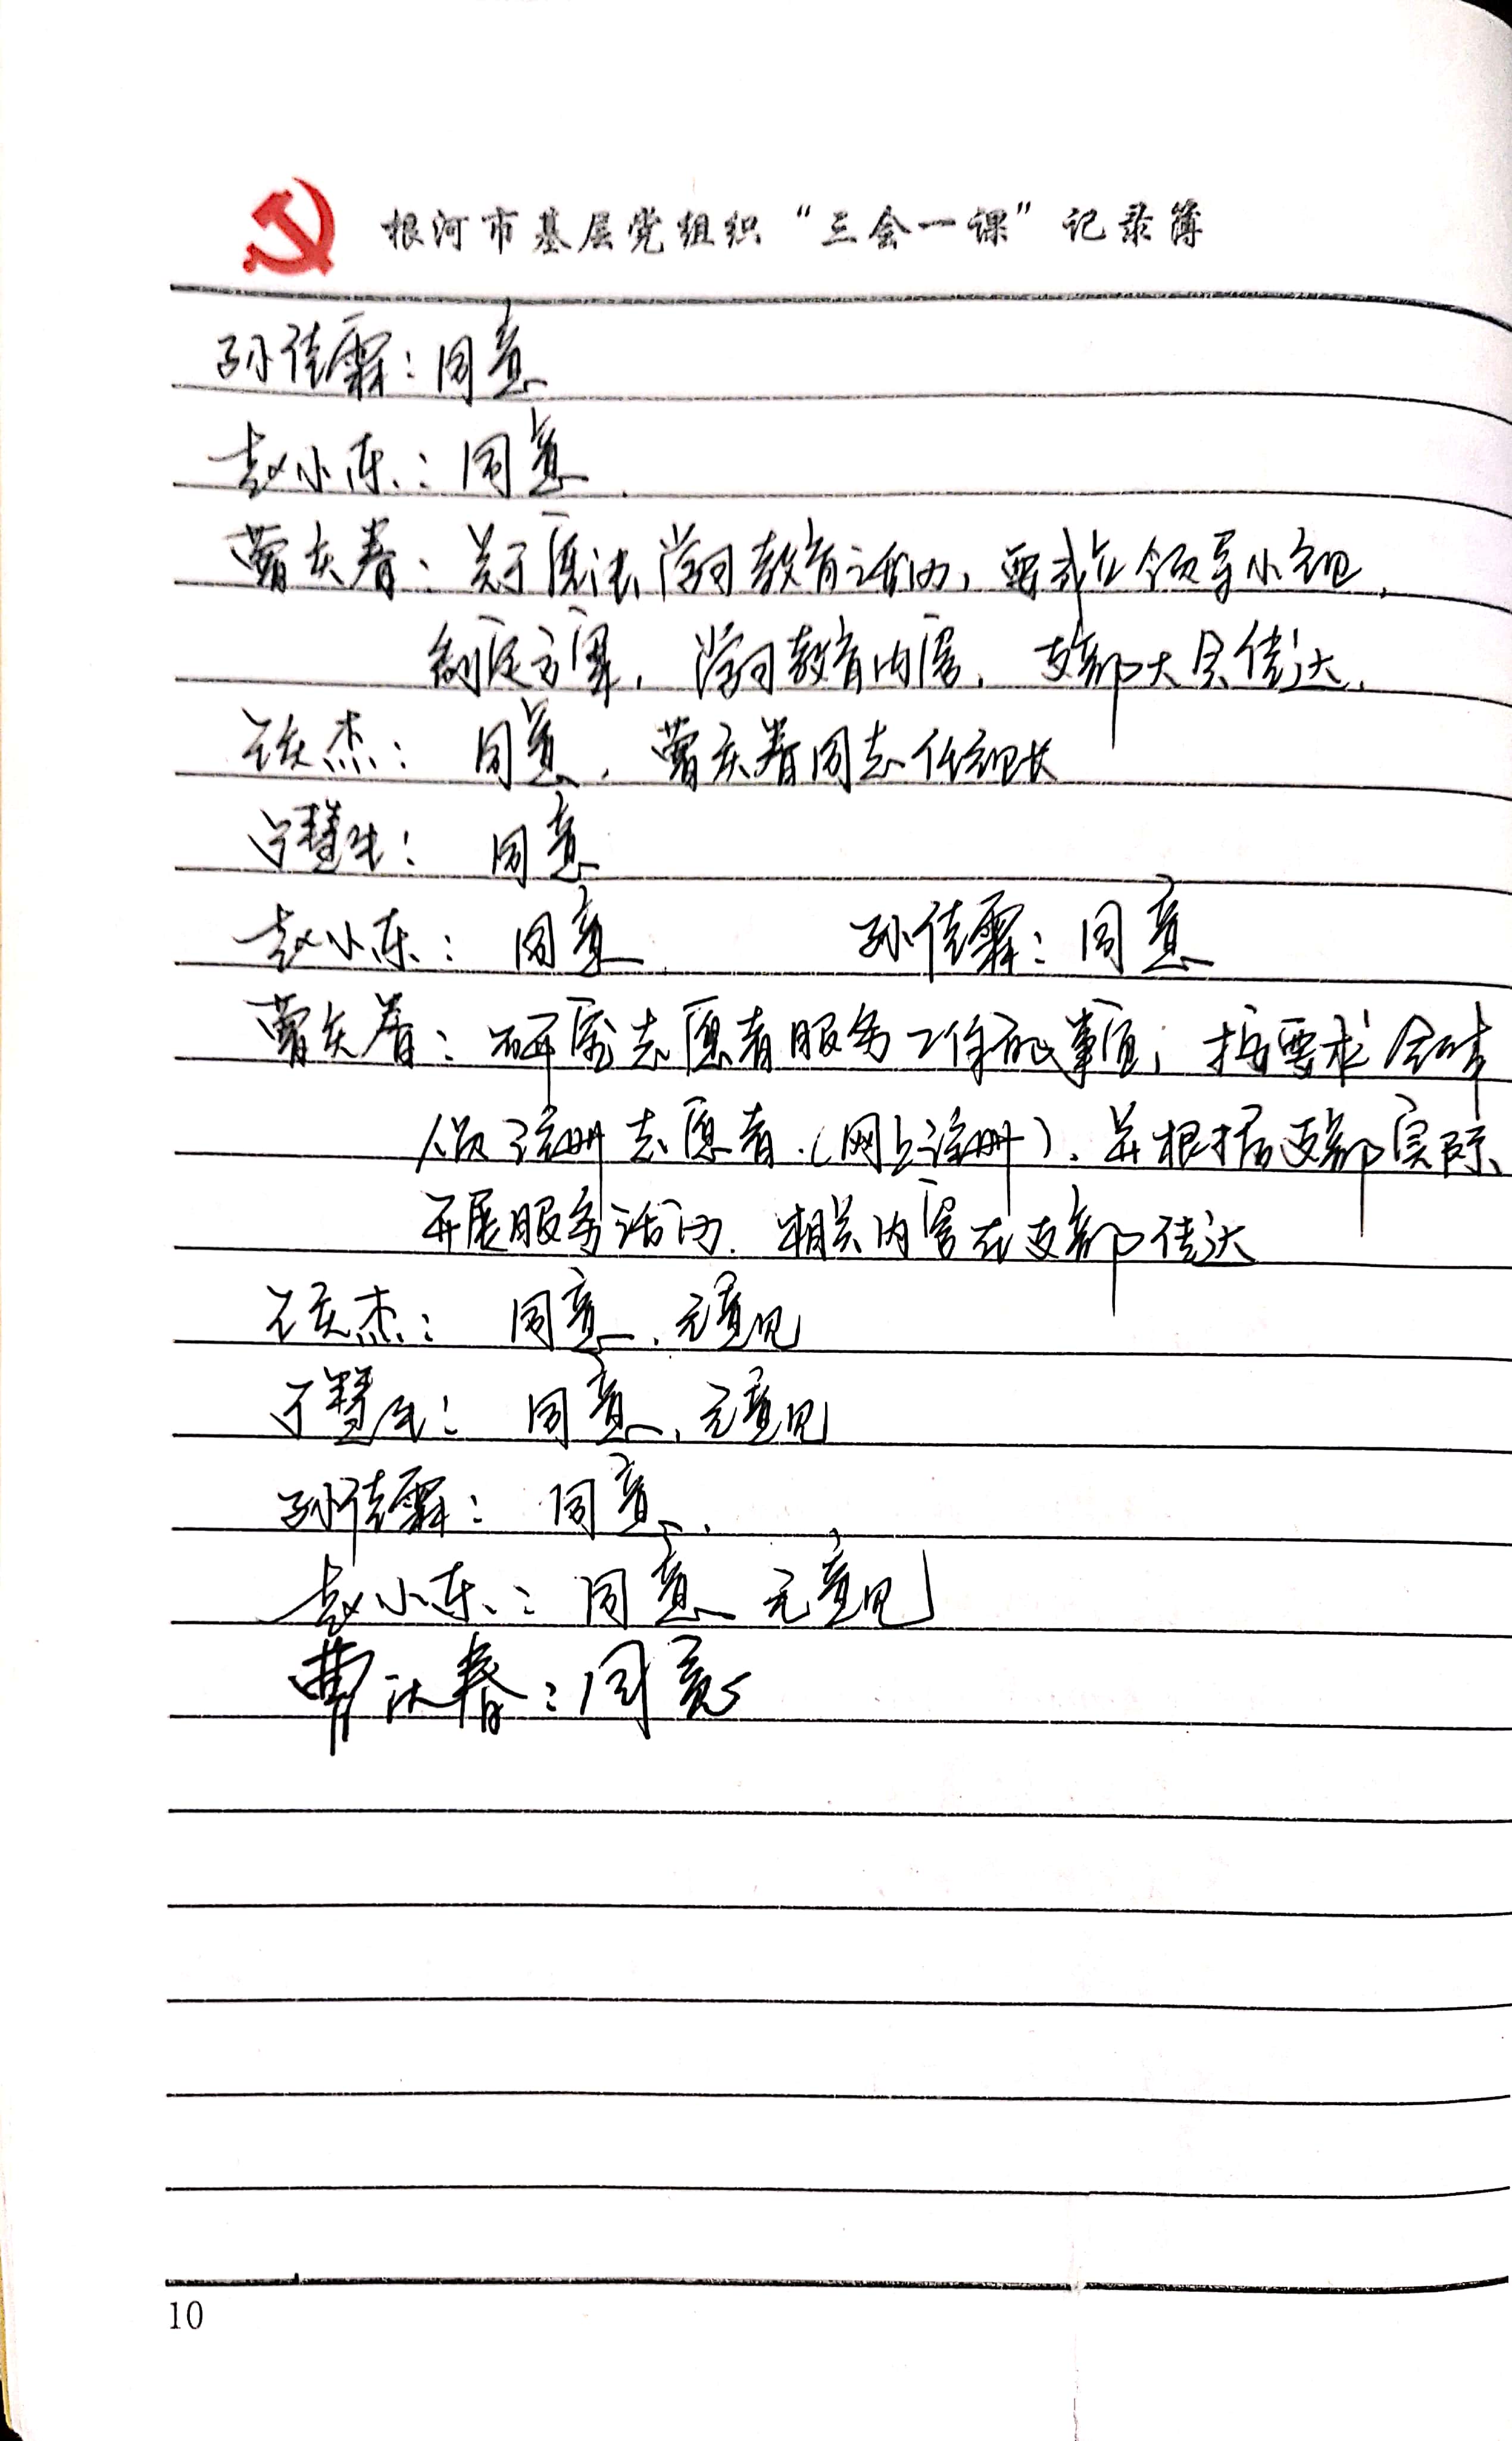 根河市基层党组织“三会一课”记录簿
孙佳霖：同意
赵小东：同意.
曹庆春：关于宪法学习教育活动，要成立领导小组，
制定方案，学习教育内容，支部大会传达.
庆杰：同意，曹庆春同志任组长
慧生：同意
赵小东：同意 孙佳霖：同意
曹庆春：研究志愿者服务工作的事宜，按要求全体
人员注册志愿者.（网上注册）.并根据支部实际、
开展服务活动.相关内容在支部传达
庆杰：同意.无意见
于慧生：同意.无意见
孙佳霖：同意.
赵小东：同意 无意见
曹庆春：同意
10